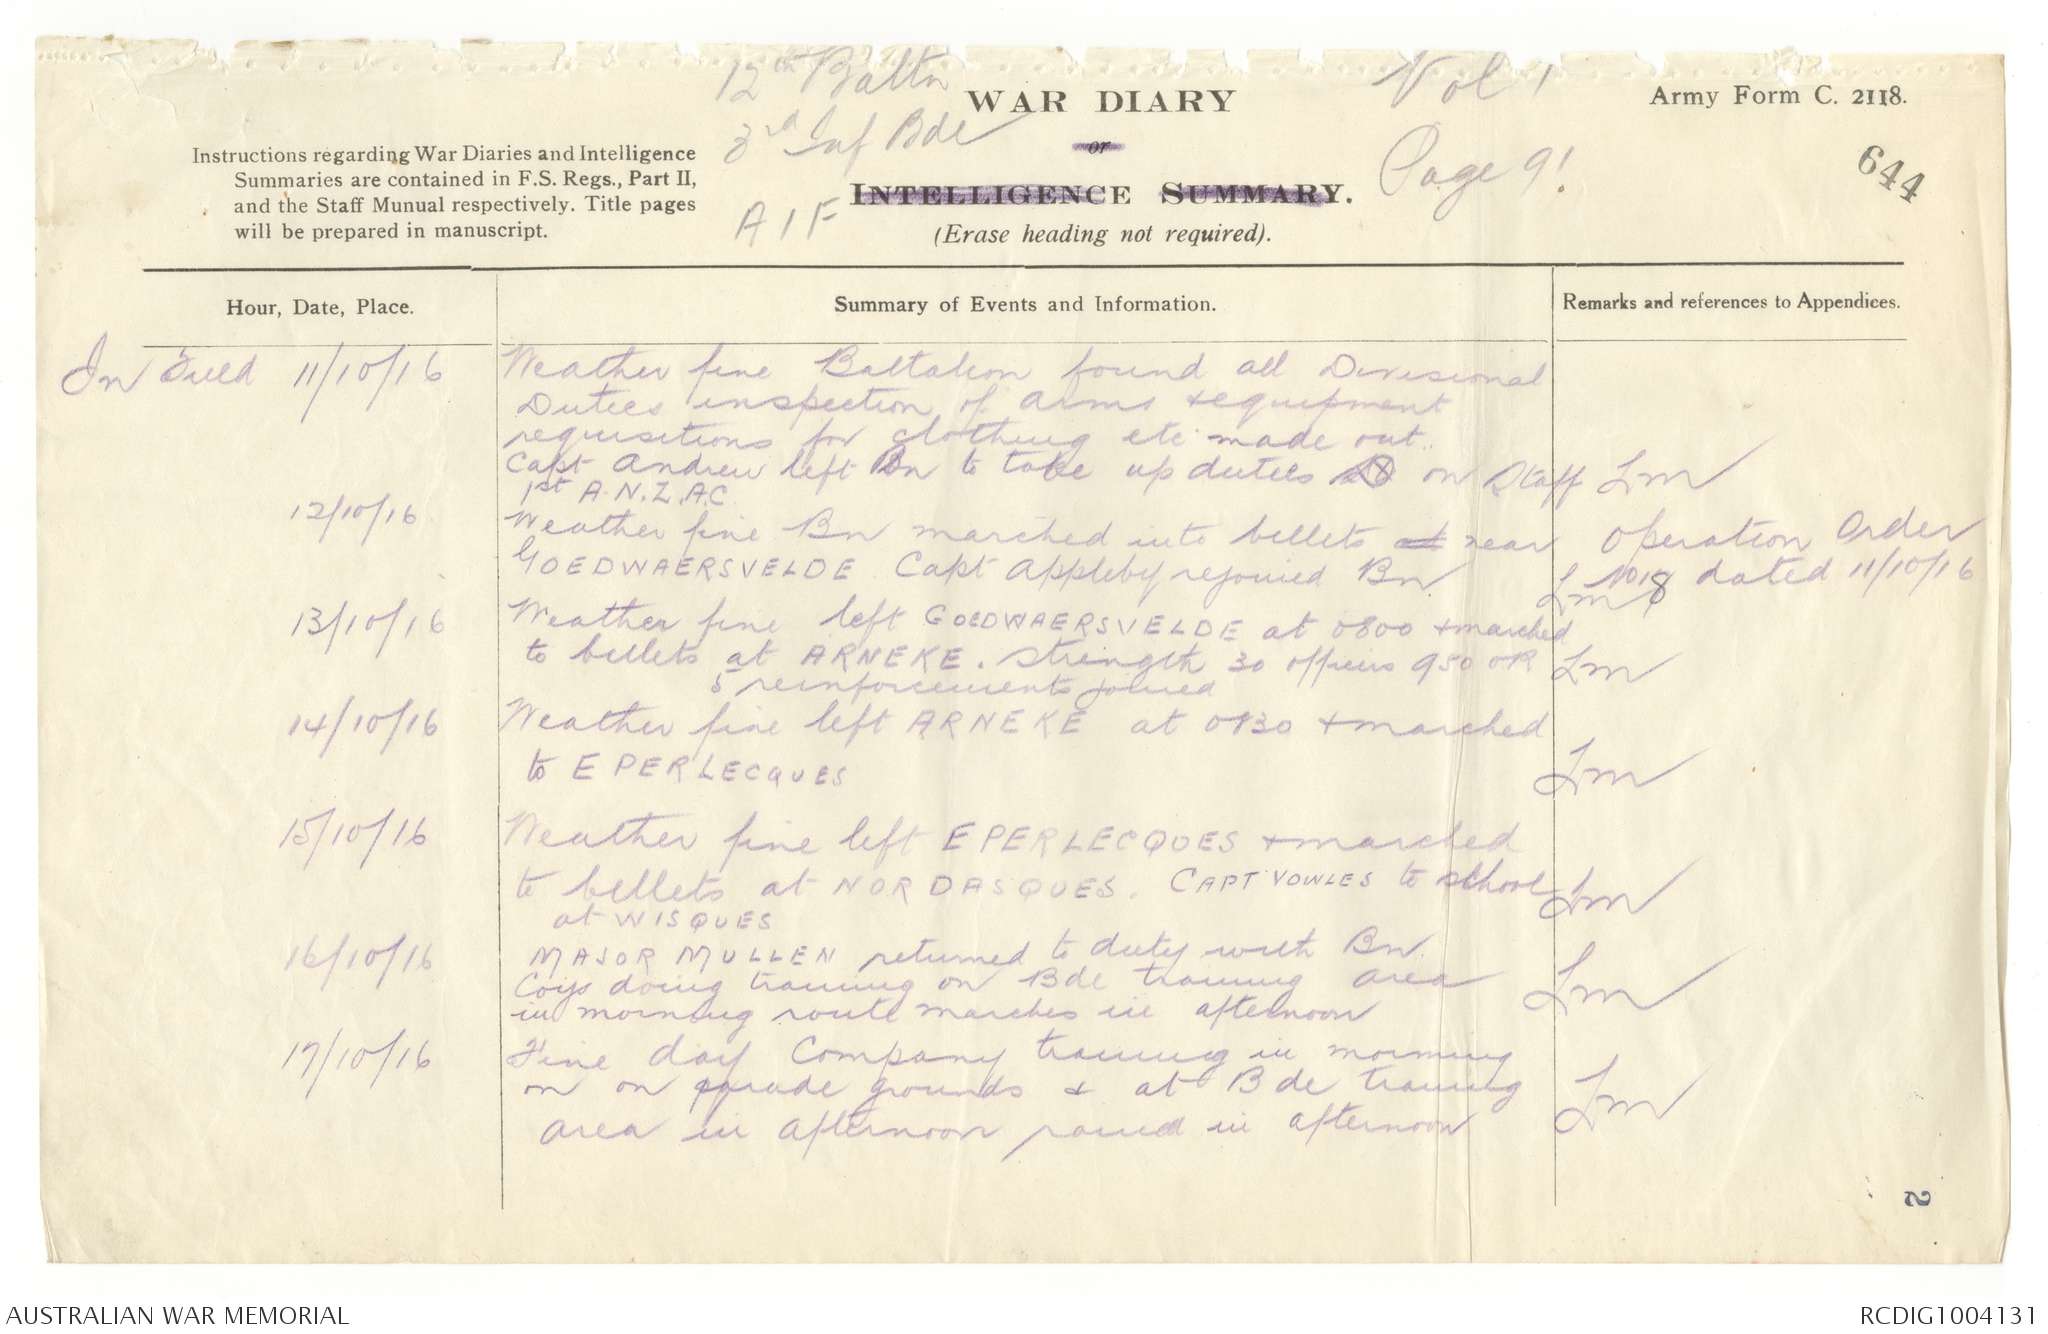 12th Battn
3rd Inf Bde
A I F
WAR DIARY
or
INTELLIGENCE SUMMARY.
(Erase heading not required).
Vol 1
Page 9!
Army Form C. 2118.
644
Instructions regarding War Diaries and Intelligence
Summaries are contained in F.S. Regs., Part II,
and the Staff Munual respectively. Title pages
will be prepared in manuscript.
Hour, Date, Place.
Summary of Events and Information.
Remarks and references to Appendices.
In Field 11/10/16 Weather fine Battalion found all Divisional
Duties inspection of arms & equipment
requisitions for clothing etc made out.
Capt Andrew left Bn to take up duties on Staff Lm
1st A.N.Z.A.C.
12/10/16 Weather fine Bn marched into billets near Operation Order
GOEDWAERSVELDE Capt Appleby rejoined Bn. Lm No 18 dated 11/10/16
13/10/16 Weather fine left GOEDWAERSVELDE at 0800 & marched
to billets at ARNEKE. Strength 30 officers 950 OR Lm
5 reinforcements joined
14/10/16 Weather fine left ARNEKE at 0830 & marched
to EPERLECQUES Lm
15/10/16 Weather fine left EPERLECQUES & marched
to billets at NORDASQUES. CAPT VOWLES to school Lm
at WISQUES
16/10/16 MAJOR MULLEN returned to duty with Bn.
Coys doing training on Bde training area Lm
in morning route marches in afternoon
17/10/16 Fine day Company training in morning
on on parade grounds & at Bde training Lm
area in afternoon rained in afternoon
2
AUSTRALIAN WAR MEMORIAL
RCDIG1004131